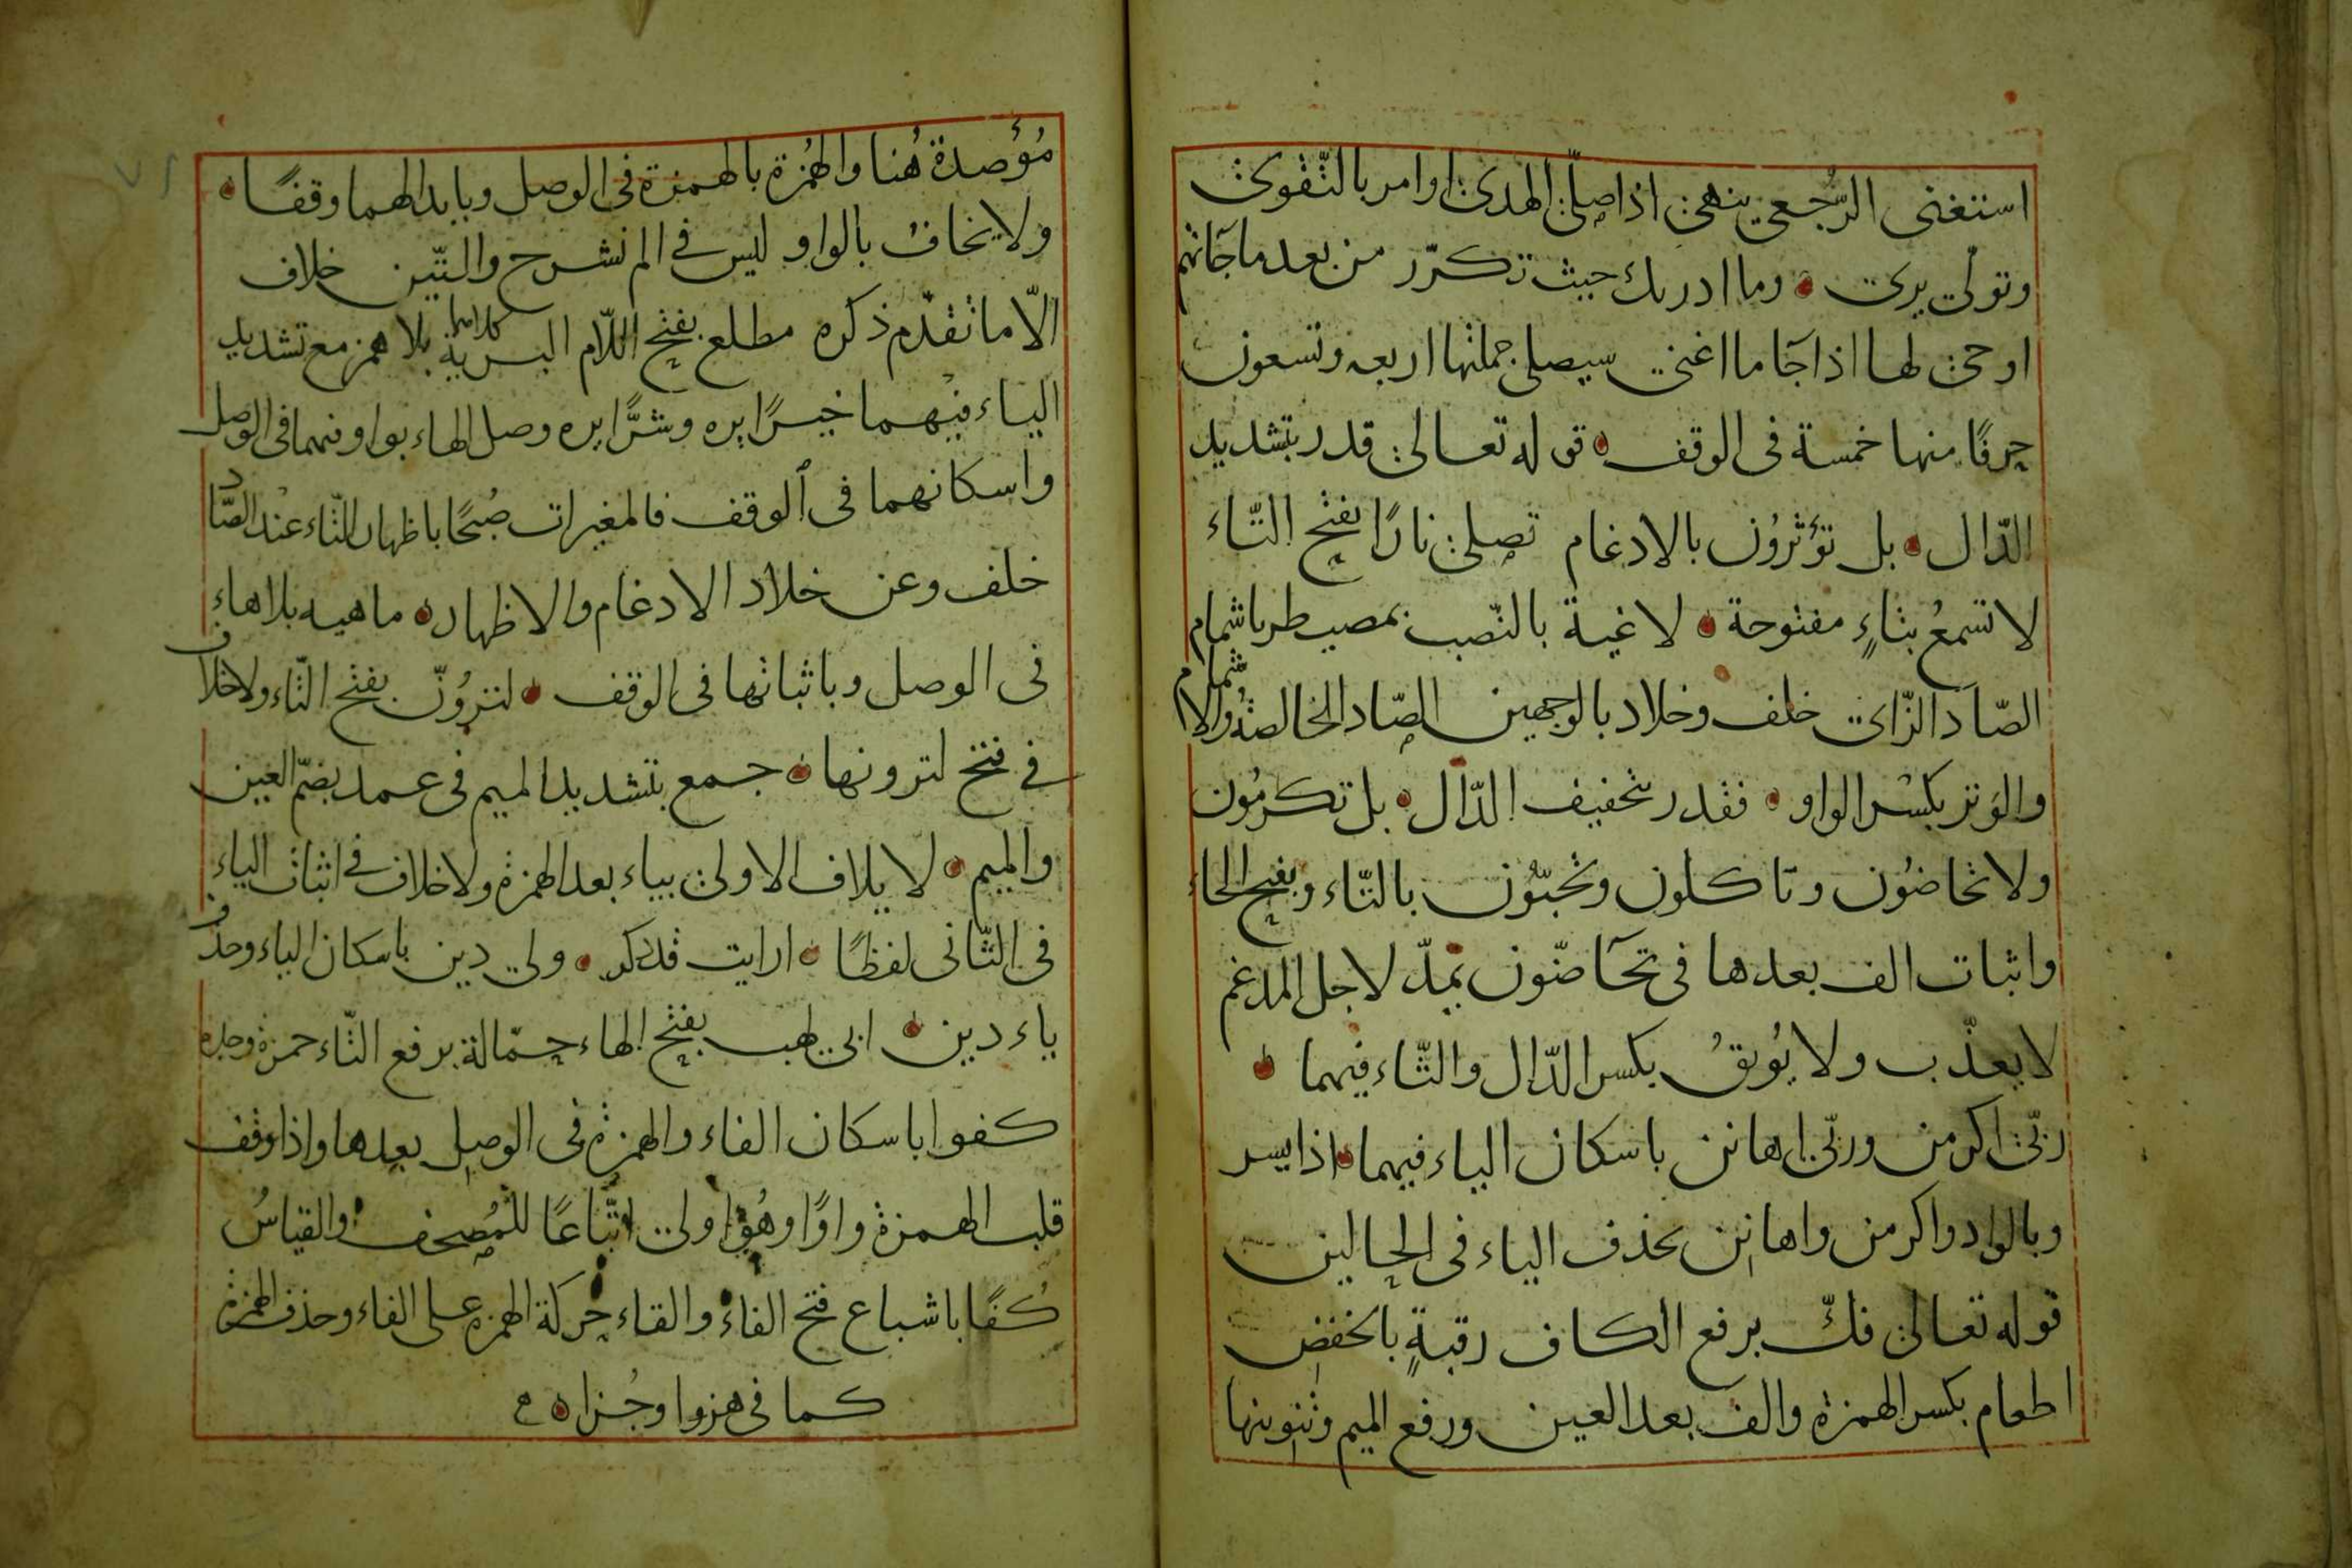 استغنى الرّجعى ينهى اذا صلّى الهدى او امر بالتّقوى
وتولّى يرى وما ادريك حيث تكرّر من بعد ما جآءتهم
اوحى لها اذا جآ ما اغنى سيصلى جملتها اربعه وتسعون
حرفًا منها خمسة فى الوقف قوله تعالى قدر بتشديد
الدّال بل تؤثرُون بالادغام تصلى نارًا بفتح التّاء
لا تسمعُ بتاءٍ مفتوحة لاغية بالنّصب بمصيطر باشمام
الصّاد الزّاى خلف وخلاد بالوجهين الصّاد الخالصة والاشمام
والوَتر بكسْر الواو فقدر بتخفيف الدّال بل تكرمُون
ولا تحاضُون وتاكلون وتحبّون بالتّاء وبفتح الحاء
واثبات الف بعدها فى تحآضّون بمدّ لاجل المدغم
لا يعذّب ولا يُوثقُ بكسر الدّال والثّاء فيهما
ربّى اكرمن وربّى اهانن باسكان الياء فيهما اذا يسر
وبالواد واكرمن واهانن بحذف الياء فى الحالين
قوله تعالى فكّ برفع الكاف رقبةٍ بالخفض
اطعام بكسر الهمزة والف بعد العين ورفع الميم وتنوينها
مُؤصدة هُنا والهُمزة بالهمزة فى الوصل وبابدالهما وقفًا
ولا يخاف بالواو ليس فى الم نشرح والتّين خلاف
الّا ما تقدّم ذكره مطلع بفتح اللّام البرية كلاهما بلا همز مع تشديد
الياء فيهما خيرًا يره وشرًّا يره وصل الهاء بواو فيهما فى الوصل
واسكانهما فى الوقف فالمغيرات صُبحًا باظهار التّاء عند الصّاد
خلف وعن خلاد الادغام والاظهار ماهيه بلا هاءٍ
فى الوصل وباثباتها فى الوقف لترُونّ بفتح التّاء ولا خلاف
فى فتح لترونها جمع بتشديد الميم فى عمد بضمّ العين
والميم لايلاف الاولى بياء بعد الهمزة ولا خلاف فى اثبات الياء
فى الثّانى لفظًا ارايت قد ذكر ولى دين باسكان الياء وحذف
ياء دين ابى لهب بفتح الهاء حمّالة برفع التّاء حمزة وحده
كفوا باسكان الفاء والهمزة فى الوصل بعدها واذا وقف
قلب الهمزة واوًا وهُو اولى اتّباعًا للمُصحف والقياسُ
كُفًا باشباع فتح الفاء والقاء حركة الهمزة على الفاء وحذف الهمزة
كما فى هزوا وجُزا